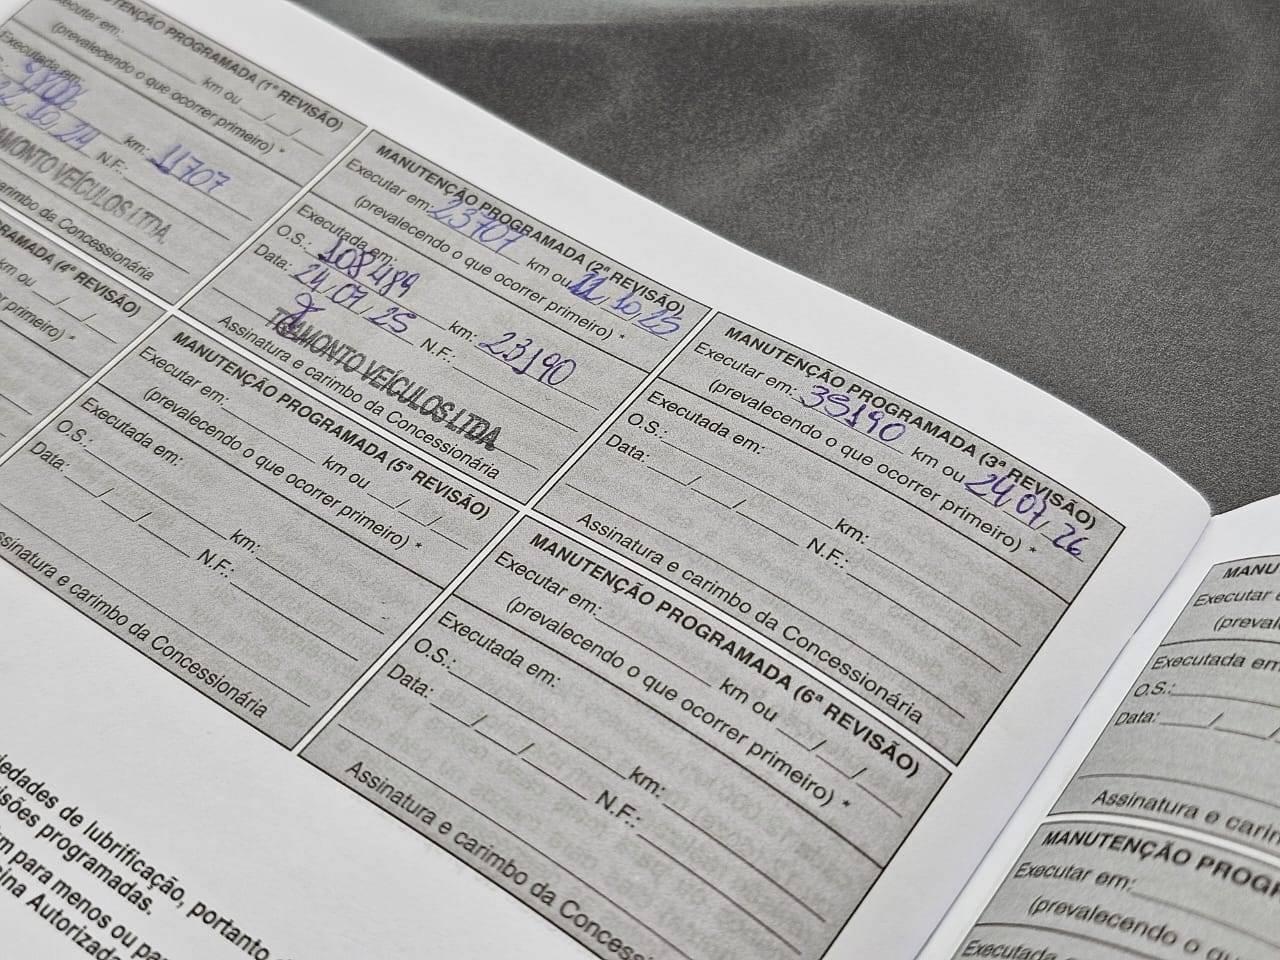 TENÇÃO PROGRAMADA (1ª REVISÃO)
Executar em: km ou / /
(prevalecendo o que ocorrer primeiro) *
Executada em:
10, 24 km: 11707
N.F.:
AMONTO VEÍCULOS LTDA.
carimbo da Concessionária
MANUTENÇÃO PROGRAMADA (2ª REVISÃO)
Executar em: 23707 km ou 22, 10, 25
(prevalecendo o que ocorrer primeiro) *
Executada em:
O.S.: 108489
Data: 24, 07, 25 km: 23190
N.F.:
TRAMONTO VEÍCULOS LTDA
Assinatura e carimbo da Concessionária
MANUTENÇÃO PROGRAMADA (3ª REVISÃO)
Executar em: 35190 km ou 24, 07, 26
(prevalecendo o que ocorrer primeiro) *
Executada em:
O.S.:
Data: / / km:
N.F.:
Assinatura e carimbo da Concessionária
GRAMADA (4ª REVISÃO)
km ou / /
r primeiro) *
MANUTENÇÃO PROGRAMADA (5ª REVISÃO)
Executar em: km ou / /
(prevalecendo o que ocorrer primeiro) *
Executada em:
O.S.:
Data: / / km:
N.F.:
Assinatura e carimbo da Concessionária
MANUTENÇÃO PROGRAMADA (6ª REVISÃO)
Executar em: km ou / /
(prevalecendo o que ocorrer primeiro) *
Executada em:
O.S.:
Data: / / km:
N.F.:
Assinatura e carimbo da Concess
sinatura e carimbo da Concessionária
iedades de lubrificação, portanto
isões programadas.
m para menos ou pa
ina Autorizada
MANU
Executar e
(preval
Executada em
O.S.:
Data: /
Assinatura e carin
MANUTENÇÃO PROG
Executar em:
(prevalecendo o qu
Executada